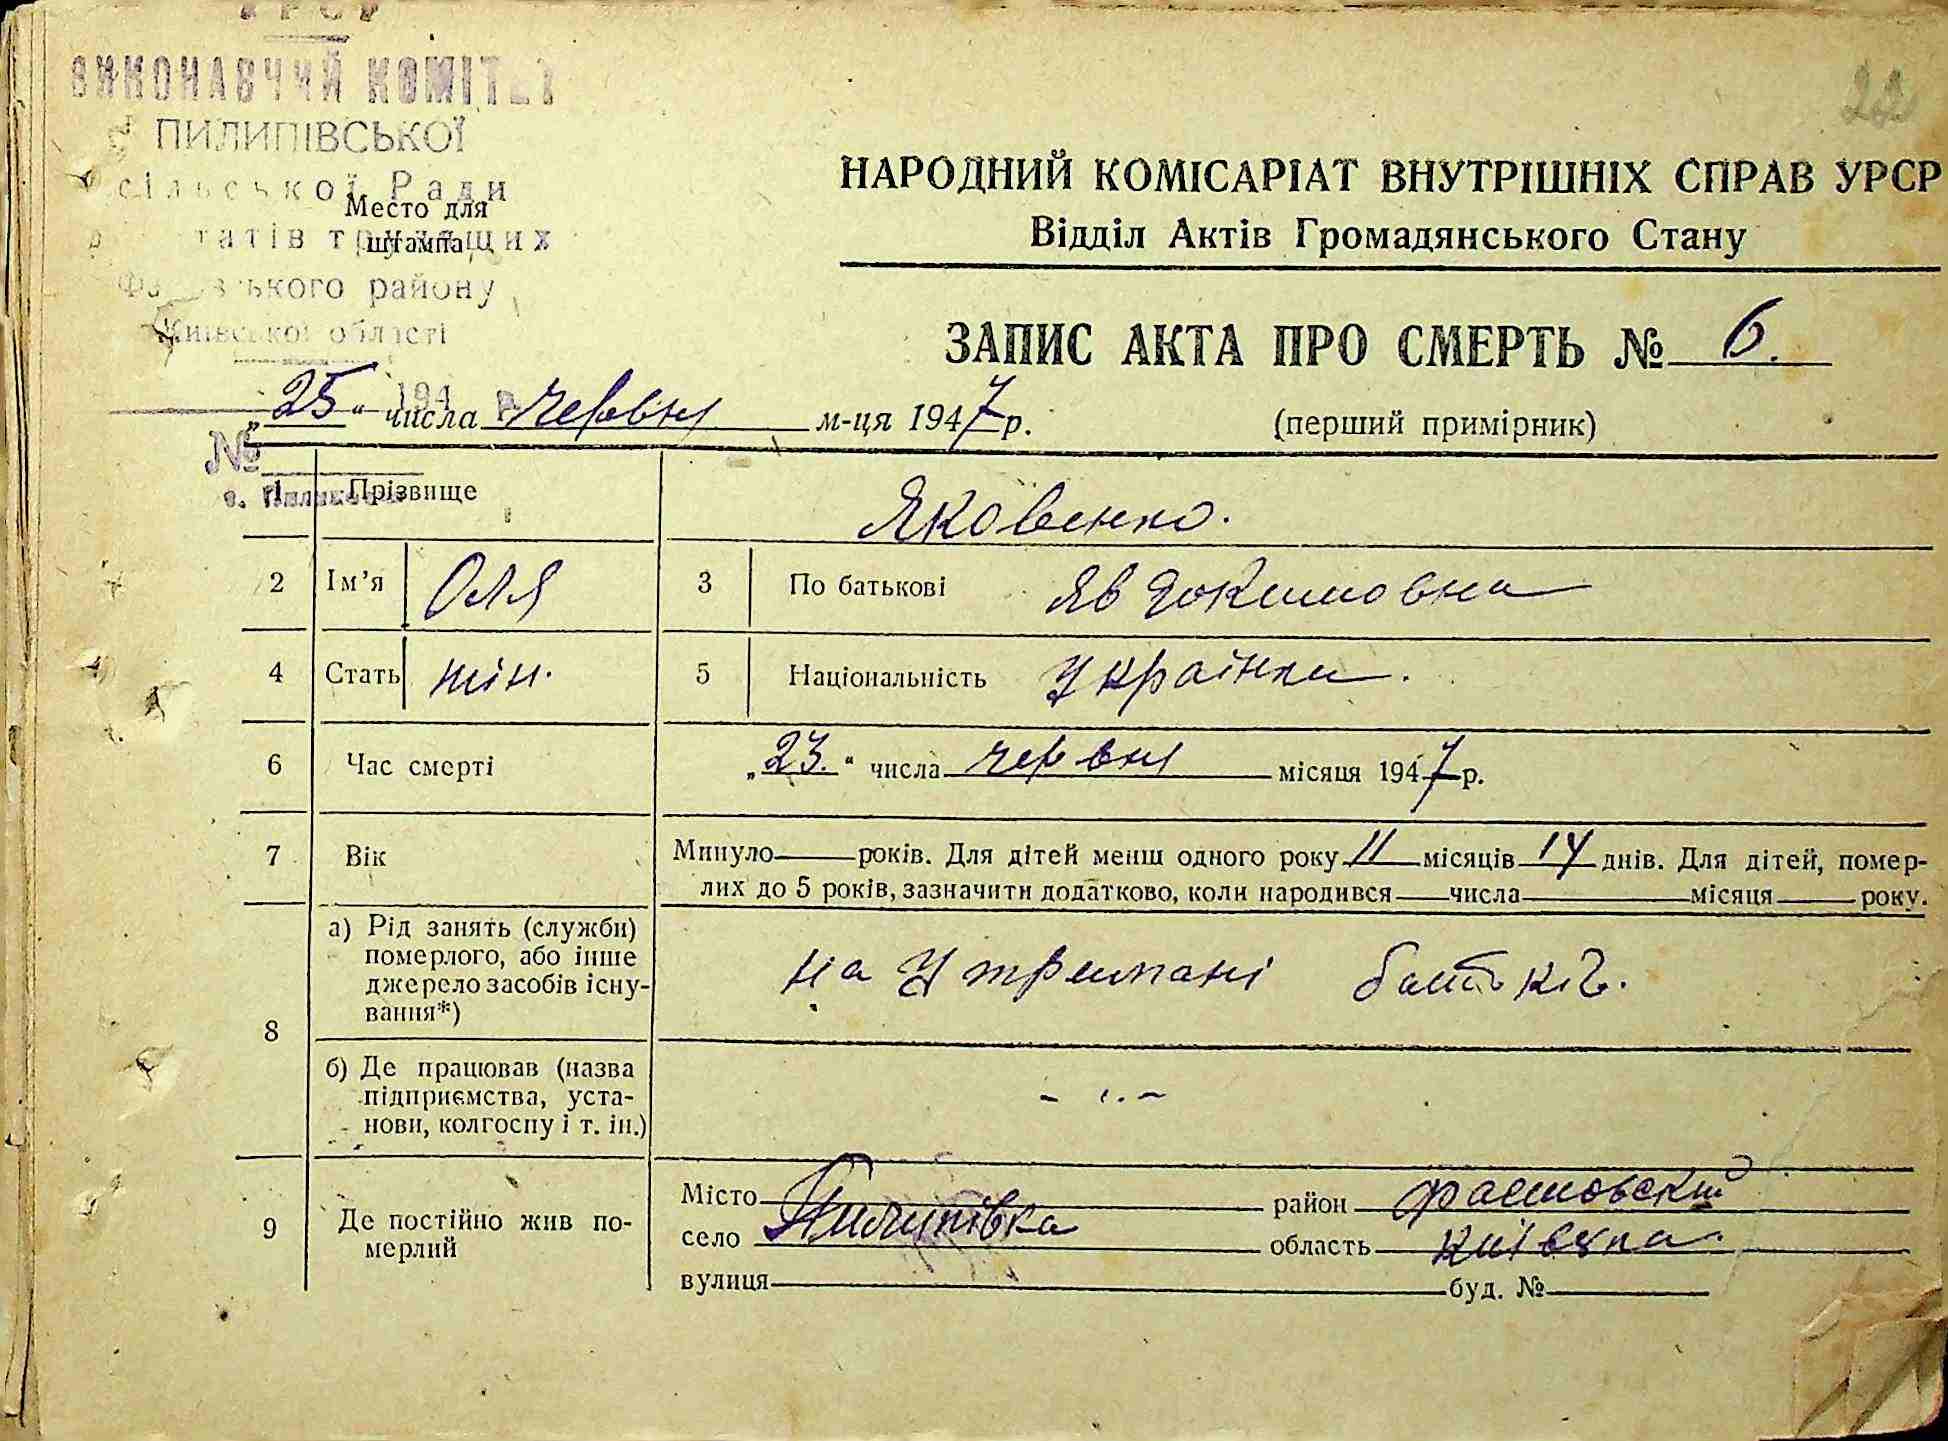 УРСР
ВИКОНАВЧИЙ КОМІТЕТ
ПИЛИПІВСЬКОЇ
сільської Ради
трудящих
Место для
штампа
ького району
Київської області
22
НАРОДНИЙ КОМІСАРІАТ ВНУТРІШНІХ СПРАВ УРСР
Відділ Актів Громадянського Стану
ЗАПИС АКТА ПРО СМЕРТЬ № 6.
(перший примірник)
194 р.
„25“ числа червня м-ця 1947 р.
№
1 Прізвище Яковенко.
2 Ім’я Оля 3 По батькові Явдокимовна
4 Стать жін. 5 Національність Українка.
6 Час смерті „23.“ числа червня місяця 1947 р.
7 Вік Минуло — років. Для дітей менш одного року 11 місяців 14 днів. Для дітей, помер-
лих до 5 років, зазначити додатково, коли народився — числа — місяця — року.
8 а) Рід занять (служби)
померлого, або інше
джерело засобів існу-
вання*)
на утримані батьків.
б) Де працював (назва
підприємства, уста-
нови, колгоспу і т. ін.)
- „ -
9 Де постійно жив по-
мерлий
Місто район Фастовский
село Пилипівка область Київська.
вулиця буд. №